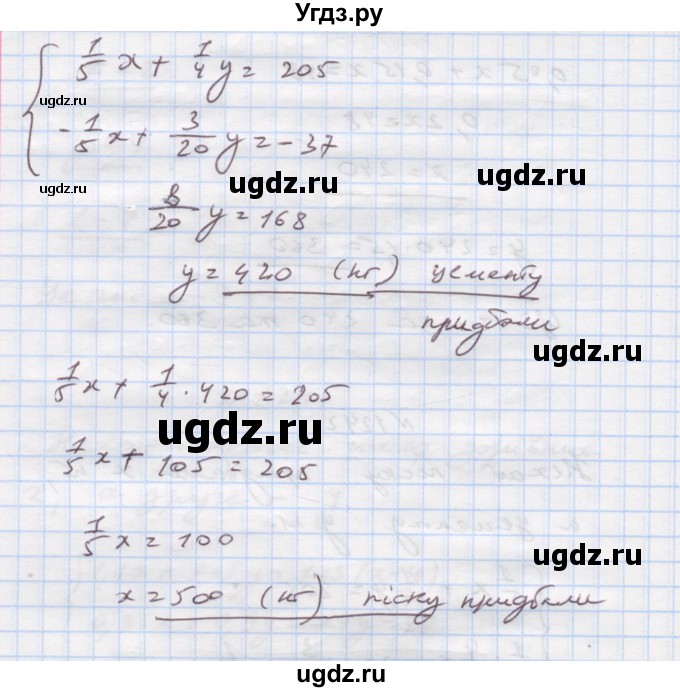 Угдз.ру
1/5 x + 1/4 y = 205
ugdz.ru
-1/5 x + 3/20 y = -37
ugdz.ru
ugdz.ru
ugdz.ru
8/20 y = 168
y = 420 (кг) цементу
придбали
ugdz.ru
1/5 x + 1/4 · 420 = 205
ugdz.ru
1/5 x + 105 = 205
ugdz.ru
1/5 x = 100
ugdz.ru
x = 500 (кг) піску придбали
ugdz.ru
ugdz.ru